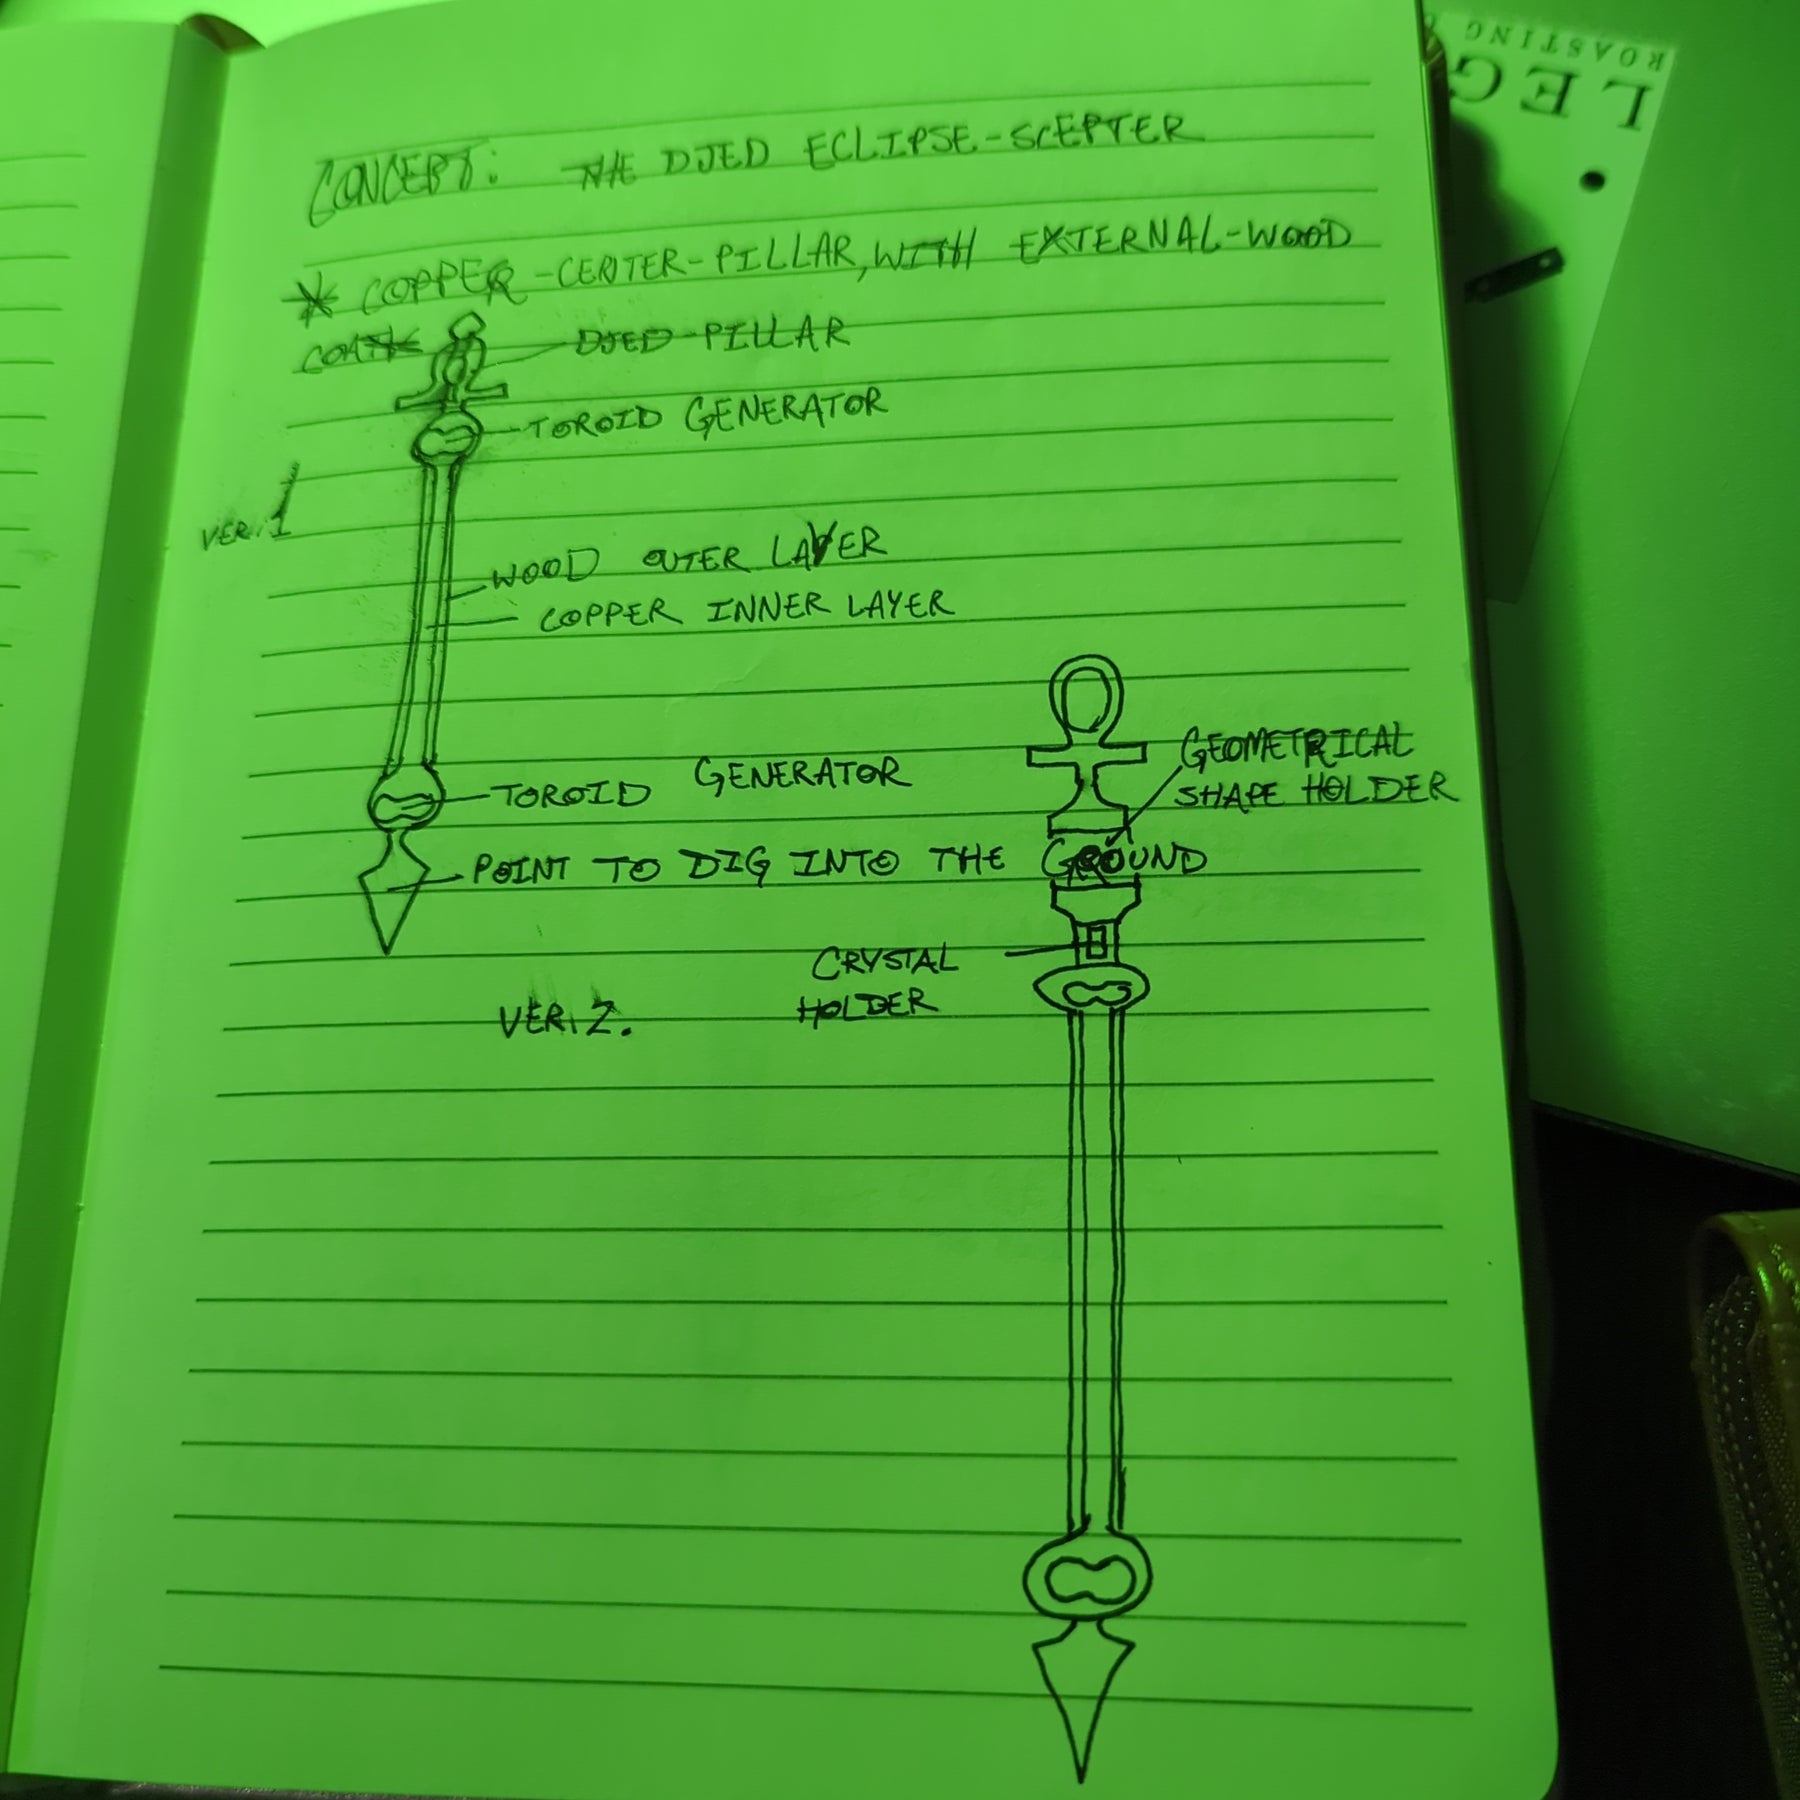 CONCEPT: THE DJED ECLIPSE-SCEPTER
* COPPER-CENTER-PILLAR, WITH EXTERNAL-WOOD
DJED-PILLAR
TOROID GENERATOR
VER. 1
WOOD OUTER LAYER
COPPER INNER LAYER
GEOMETRICAL
SHAPE HOLDER
TOROID GENERATOR
POINT TO DIG INTO THE GROUND
CRYSTAL
HOLDER
VER. 2.
LEG
ROASTING